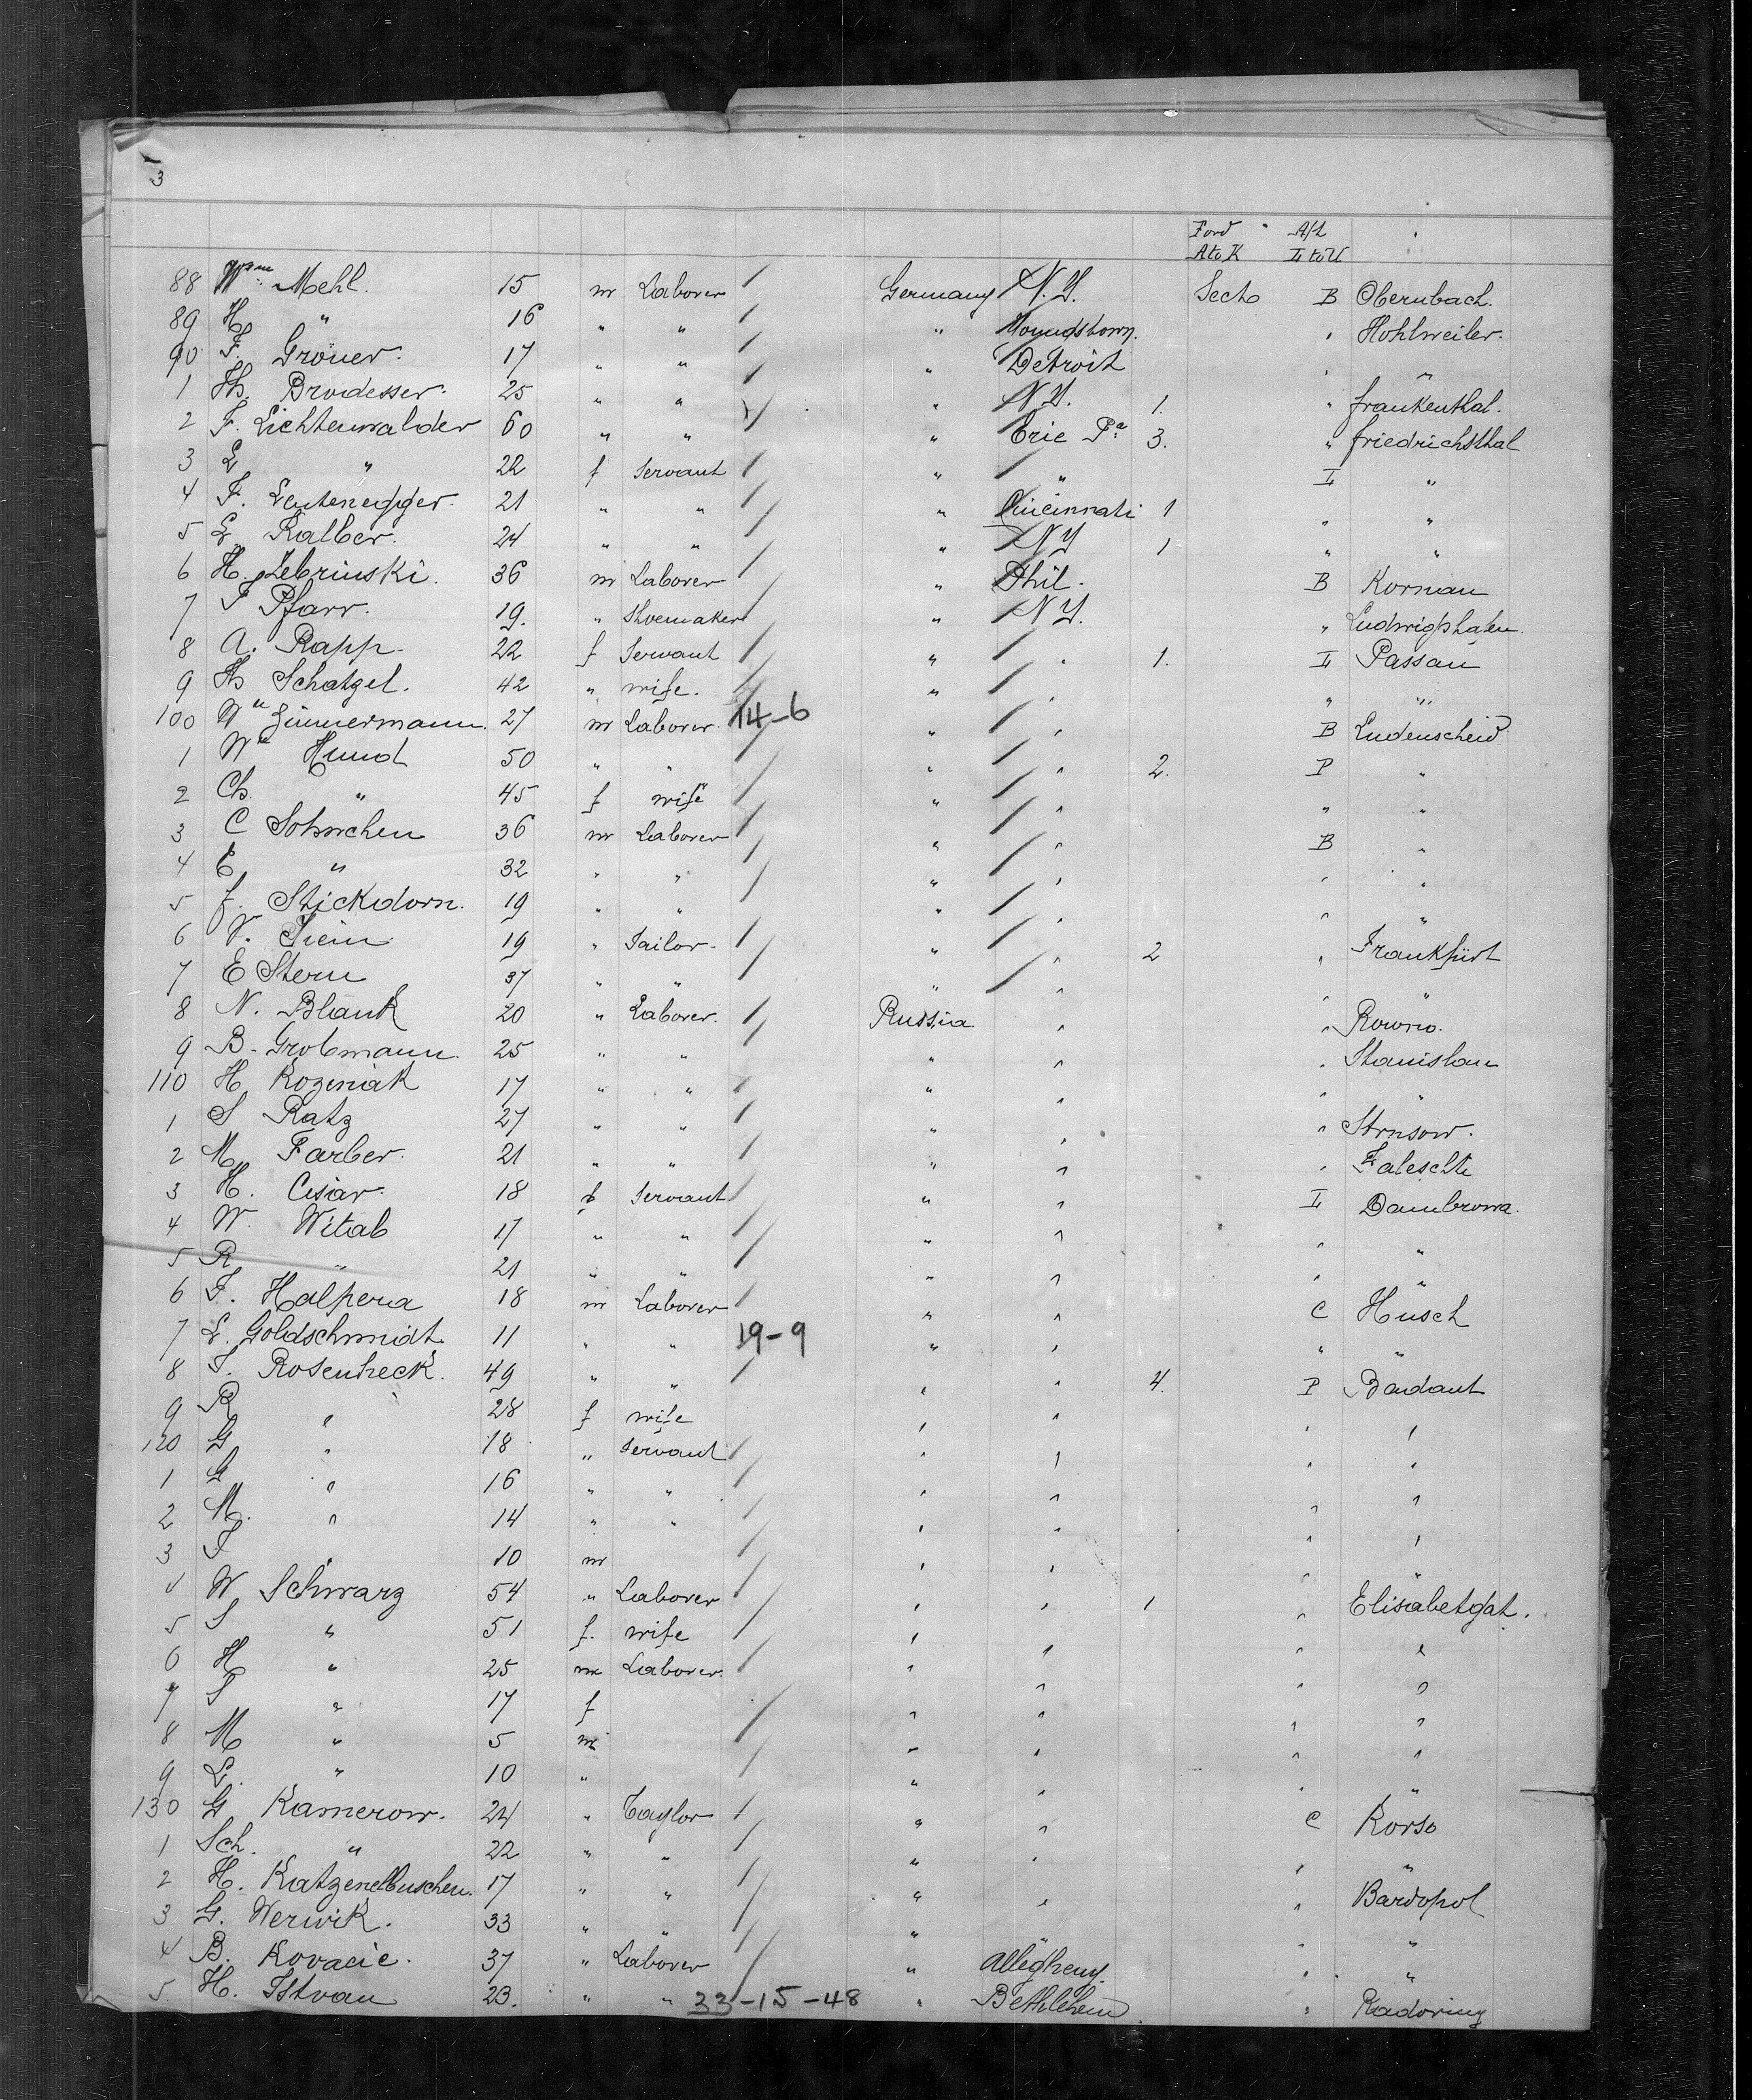 3
Ford " Aft
A to K L to U
88 Wm Mehl. 15 m Laborer / Germany N.Y. Sects B Obernbach.
89 H. " 16 " " / " Youngstown. " Hohlweiler.
90 F. Gröner. 17 " " / " Detroit " "
1 Th. Brodesser. 25 " " / " N.Y. 1. " Frankenthal.
2 F. Lichtenwalder 60 " " / " Erie Pa. 3. " Friedrichsthal
3 L " 22 f Servant / " " L "
4 F. Leutenegger. 21 " " / " Cincinnati 1 " "
5 L Kalber. 24 " " / " N.Y 1 " "
6 H. Lebrinski. 36 m Laborer / " Phil. B Kornau
7 Pfarr. 19. " Shoemaker / " N.Y. " Ludwigshafen.
8 A. Rapp. 22 f Servant / " " 1. L Passau
9 Th Schatzel. 42 " wife. / " " " "
100 Wm Zimmermann. 27 m Laborer. 14-6 " " B Ludenscheid
1 Wm Hund 50 " " / " " 2. P "
2 Ch. " 45 f wife / " " " "
3 C Sohnchen 36 m Laborer / " " B "
4 E " 32 " " / " " " "
5 f. Stickdorn. 19 " " / " " " "
6 V. 19 " Tailor. / " " 2 " Frankfurt
7 E Stern 37 " " / " " " "
8 N. Blank 20 " Laborer. / Russia " " Rowno.
9 B. Grobmann. 25 " " / " " " Stanislau
110 H. Kozeniak 17 " " / " " " "
1 S Ratz 27 " " / " " " Strusow.
2 M. Farber. 21 " " / " " " Faleschti
3 H. Cisar. 18 f Servant / " " L Dambrowa.
4 W. Witab 17 " " / " " " "
5 R " 21 " " / " " " "
6 F. Halpern 18 m Laborer / " " C Husch
7 L. Goldschmidt. 11 " " 19-9 " " " "
8 S. Rosenheck. 49 " " / " " 4. P Badaut
9 R " 28 f wife " " " "
120 G " 18 " Servant / " " " "
1 G " 16 " " / " " " "
2 M. " 14 " " / " " " "
3 F " 10 m / " " " "
4 W Schwarz 54 " Laborer / " " 1 " Elisabetgat.
5 S " 51 f. wife / " " " "
6 H " 25 m Laborer. / " " " "
7 S " 17 f " " " "
8 M " 5 m / " " " "
9 L. " 10 " / " " " "
130 G Kamerow. 24 " Taylor / " " C Korso
1 Sch. " 22 " " / " " " "
2 H. Katzenelbuschen. 17 " " / " " " Bardopol
3 G. Werwik. 33 " " / " " " "
4 B. Kovacic. 37 " Laborer / " Allegheny. " "
5. H. Istvan 23. " " 33-15-48 " Bethlehem. " Kadoring